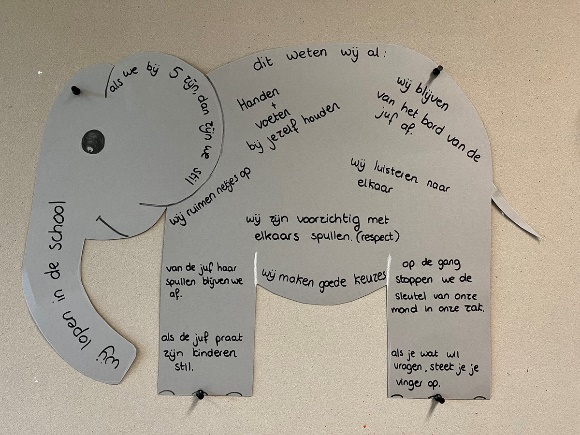 dit weten wij al:
als we bij 5 zijn, dan zijn we stil
Handen
+
voeten
bij jezelf houden
wij blijven
van het bord van de
juf af.
wij luisteren naar
elkaar
wij ruimen netjes op
wij zijn voorzichtig met
elkaars spullen. (respect)
wij lopen in de school
van de juf haar
spullen blijven we
af.
wij maken goede keuzes
op de gang
stoppen we de
sleutel van onze
mond in onze zak.
als de juf praat
zijn kinderen
stil.
als je wat wil
vragen, steek je je
vinger op.